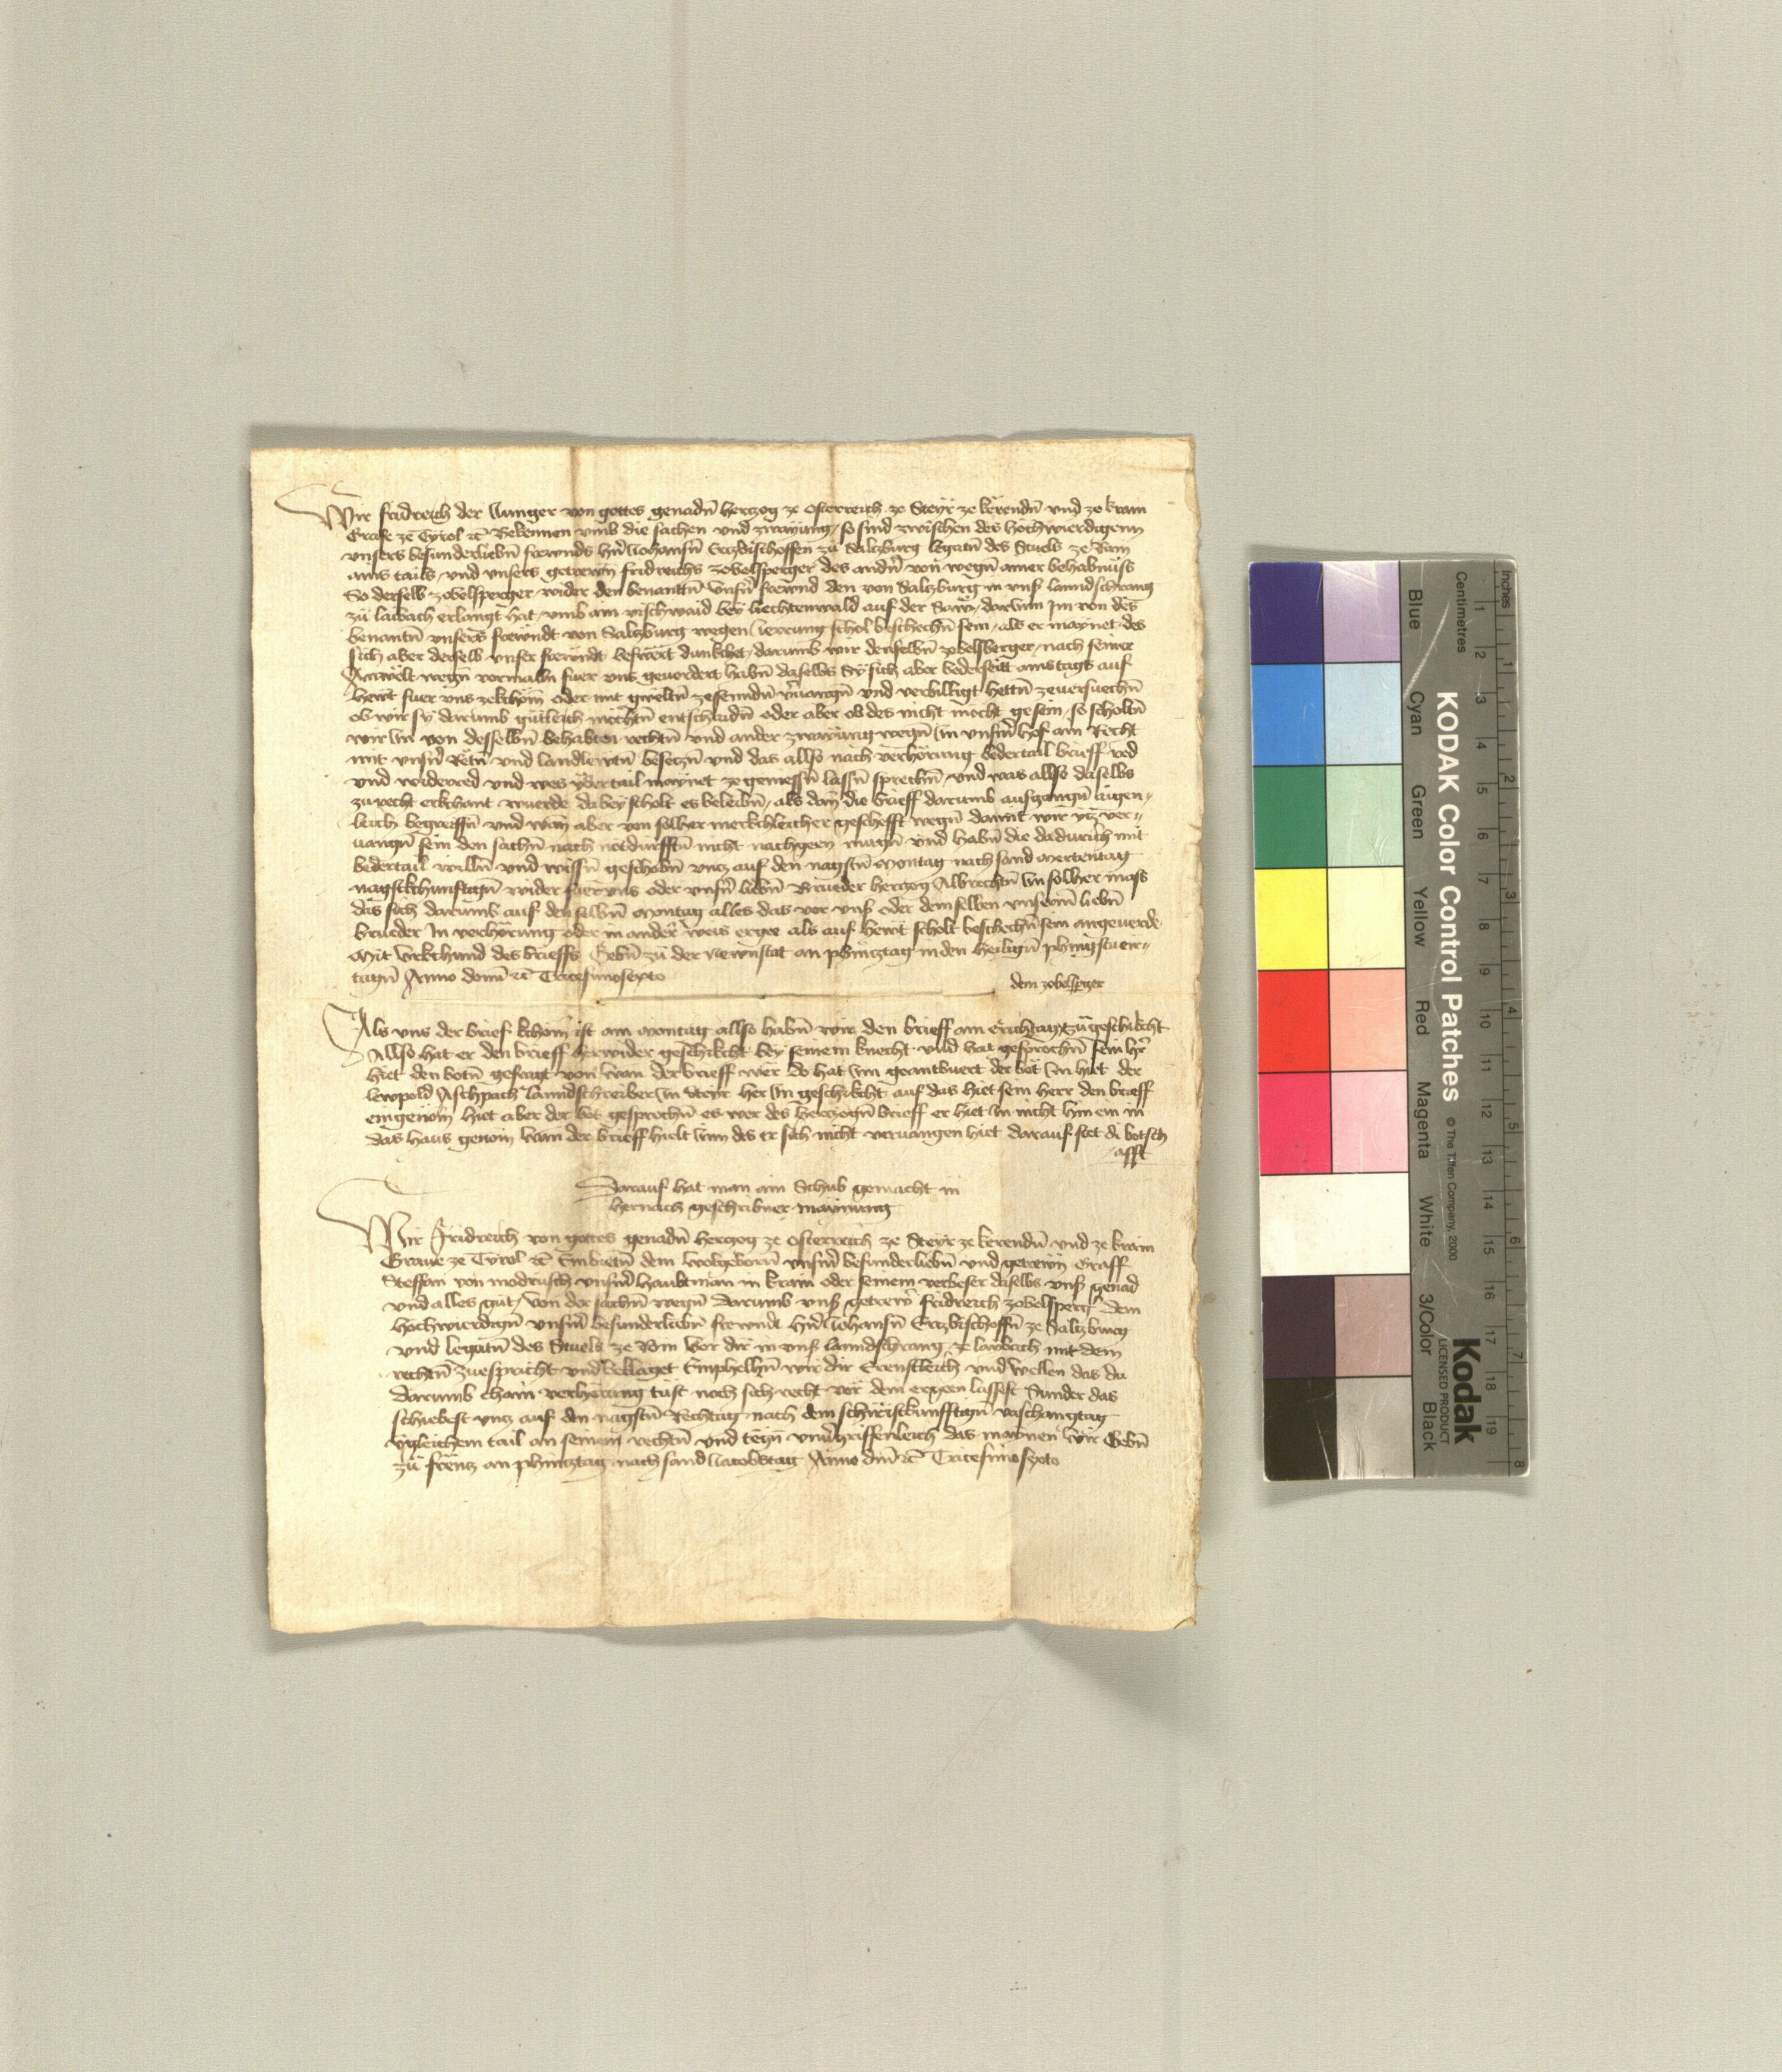 Wir fridreich der Junger von gottes genadn̄ herczog ze Osterreich ze Steyr ze kerendn̄ und ze krain
Grafe ze Tyrol ꝛc̄ Bekennen umb die sachen und zwayung / so sind zwischen des hochwierdigenn
unsers besunderliebn̄ frewnds hn̄ Johansn̄ Erczbischoffen zu Salczburg legatn̄ des Stuels ze Rom
ains tails / und unsers getrewn fridreichs zobelsperger des andn̄ von wegn̄ ainer behabnüss
So derselb zobelsperger wider den benantn̄ unsn̄ frewnd den von Salczburg in unß lanndschrang
zu laibach erlangt hat / umb ain vischwaid bey liechtenwald auf der Saw / darInn Im von des
benantn̄ unsers frewndt von Salczburg wegen Jerrung schol beschechn̄ sein / als er maynet des
sich aber derselb unser frewndt beswert dunkchet / darumb wir denselbn̄ zobelsberger / nach seiner
Anwelt wegn̄ vormaln fuer uns geuordert habn̄ daselbs Sy sich aber bederseitt ainstags auf
hewt fuer uns zekchom̄ oder mit gwaltn̄ zesenndn̄ und verbilligt hettn̄ zeuersuechn̄
ob wir sy darumb gutleich mochtn̄ entschaidn̄ oder aber ob des nicht mocht gesein / so scholtn̄
wir In von desselbn̄ behabten rechtn̄ und ander zwayung wegn̄ In unsm̄ hof ain Recht
mit unsn̄ Retn̄ und landlewtn̄ besetzn̄ und das allso nach verhörung bedertail brieff red
und widerred und wes yder tail maynet zegeniessn̄ lassn̄ sprechn̄ / und was allso daselbs
zu recht erkchant wuerde dabey scholt es beleibn̄ / als dan̄ die brieff darumb ausgangn̄ aigen-
leich begreiffn̄ und wan̄ aber von solher merkchleicher geschefft wegn̄ damit wir ytz ver-
uangn̄ sein den sachn̄ nach notdurfftn̄ nicht nachgeen mugn̄ und habn̄ die dadurch mit
bedertail willn̄ und wissn̄ geschobn̄ uncz auf den nagstn̄ Montag nach sand Mertentag
nagstkchunftign̄ wider fuer uns oder unsn̄ liebn̄ Brueder herczog Albrechtn̄ In solher mass
das sich darumb auf denselbn̄ Montag alles das vor uns oder demselben unserm liebn̄
brueder In verhörung oder in ander weis ergee als auf hewt scholt beschechn̄ sein angeuerde
Mit Urkchund des brieffs Gebn̄ zu der Newnstat an phincztag in den heilign̄ phingstueir-
tagn̄ Anno domī ꝛc̄ Tricesimosexto
dem zobelsperger
Als uns der brief kchom̄ ist am Montag allso habn̄ wir den brieff am Erichtag zugeschikcht
Allso hat er den brieff herwider geschikcht bey seinem knecht und hat gesprochn̄ sein hr̄
hiet den botn̄ gefragt von wan der brieff wer do hat Im geantbuert der bot In hiet der
lewpold Aschpach lanndschreiber In Steyr her In geschikcht auf das hiet sein herr den brieff
eingenom̄ hiet aber der bot gesprochn̄ es wer des herczogn̄ brieff er hiet In nicht hin ein in
das haus genom̄ wan der brieff hielt Inn des er sich nicht veruangen hiet darauf stet di botsch
afft
Darauf hat man ain Schub gemacht in
hernach geschribner maynung
Wir Fridreich von gottes genadn̄ herczog ze Osterreich ze Steyr ze kerendn̄ und ze krain
Graue ze Tyrol ꝛc̄ Embietn̄ dem wolgebornn̄ unsm̄ besunderliebn̄ und getrewn̄ Graff
Steffan von Modrusch unsm̄ haubtman in krain oder seinem verbeser daselbs unß genad
und alles gut / Von der sachn̄ wegn̄ darumb unß getrewr̄ fridreich zobelsperg dem
hochwierdign̄ unsm̄ besunderliebn̄ frewndt hn̄ Johansn̄ Erczbischoffn̄ ze Salczburg
und legatn̄ des Stuels ze Rom vor dir in unß lanndschrang ze laibach mit dem
rechtn̄ zuespricht und beklaget Emphelhn̄ wir dir Ernstleich und wellen das du
darumb chain verhörung tust noch sich recht vor dem ergeen lassest Sunder das
schiebest uncz auf den nagstn̄ Rechtag nach dem schiristkunfftign̄ vaschangtag
ygleichem tail an seinem rechtn̄ und tegn̄ unuergriffenleich das maynen wir Gebn̄
zu Frenz an phincztag nach sand Jacobstag Anno dm̄ ꝛc̄ Tricesimosexto
KODAK Color Control Patches © The Tiffen Company, 2000
Kodak
LICENSED PRODUCT
Inches 1 2 3 4 5 6 7 8
Centimetres 1 2 3 4 5 6 7 8 9 10 11 12 13 14 15 16 17 18 19
Blue Cyan Green Yellow Red Magenta White 3/Color Black